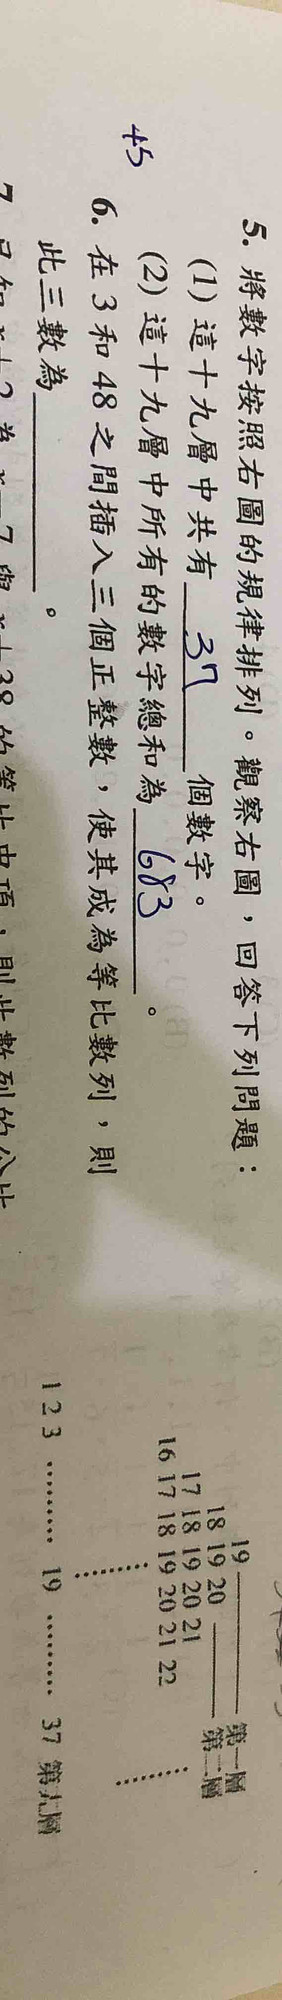 5. 將數字按照右圖的規律排列。觀察右圖，回答下列問題：
(1) 這十九層中共有 37 個數字。
(2) 這十九層中所有的數字總和為 683 。
45
6. 在 3 和 48 之間插入三個正整數，使其成為等比數列，則
此三數為 。
7. 已知 x+2 為 x-7 與 x+38 的等比中項，則此數列的公比
19 第一層
18 19 20 第二層
17 18 19 20 21
16 17 18 19 20 21 22
1 2 3 ……… 19 ……… 37 第十九層